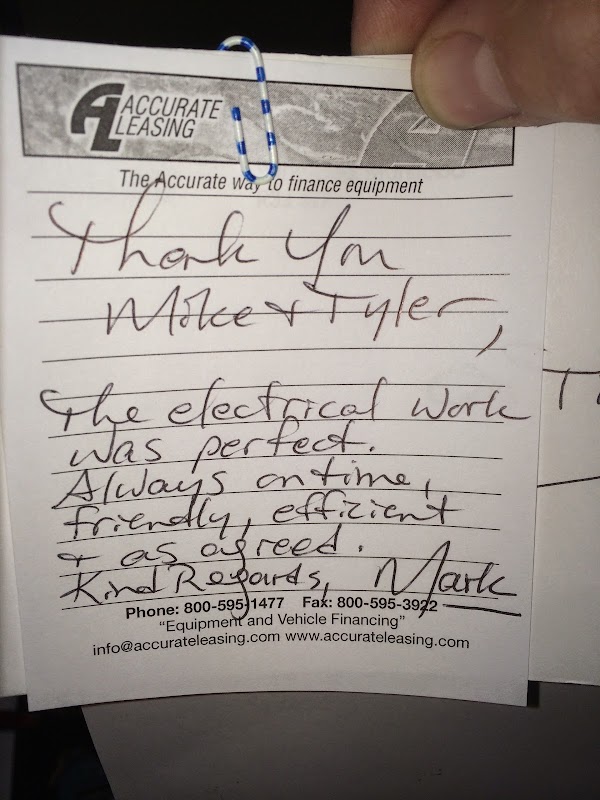 AL ACCURATE
LEASING
The Accurate way to finance equipment
Thank You
Mike & Tyler,
The electrical work
was perfect.
Always on time,
friendly, efficient
& as agreed.
Kind Regards, Mark
Phone: 800-595-1477 Fax: 800-595-3922
"Equipment and Vehicle Financing"
info@accurateleasing.com www.accurateleasing.com